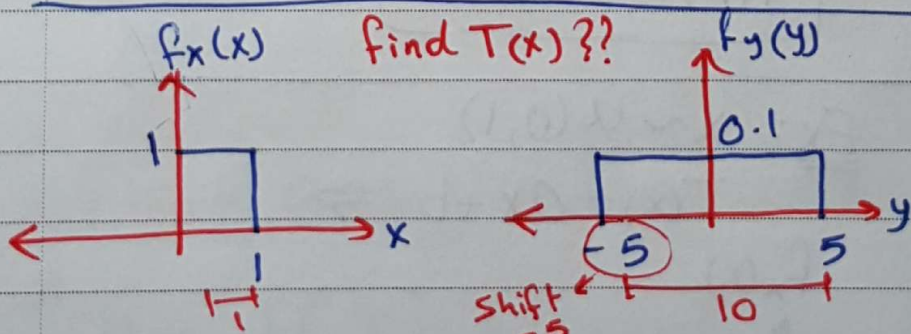 fx(x) find T(x)?? fy(y)
1 0.1
x y
1 -5 5
1 shift 10
-5